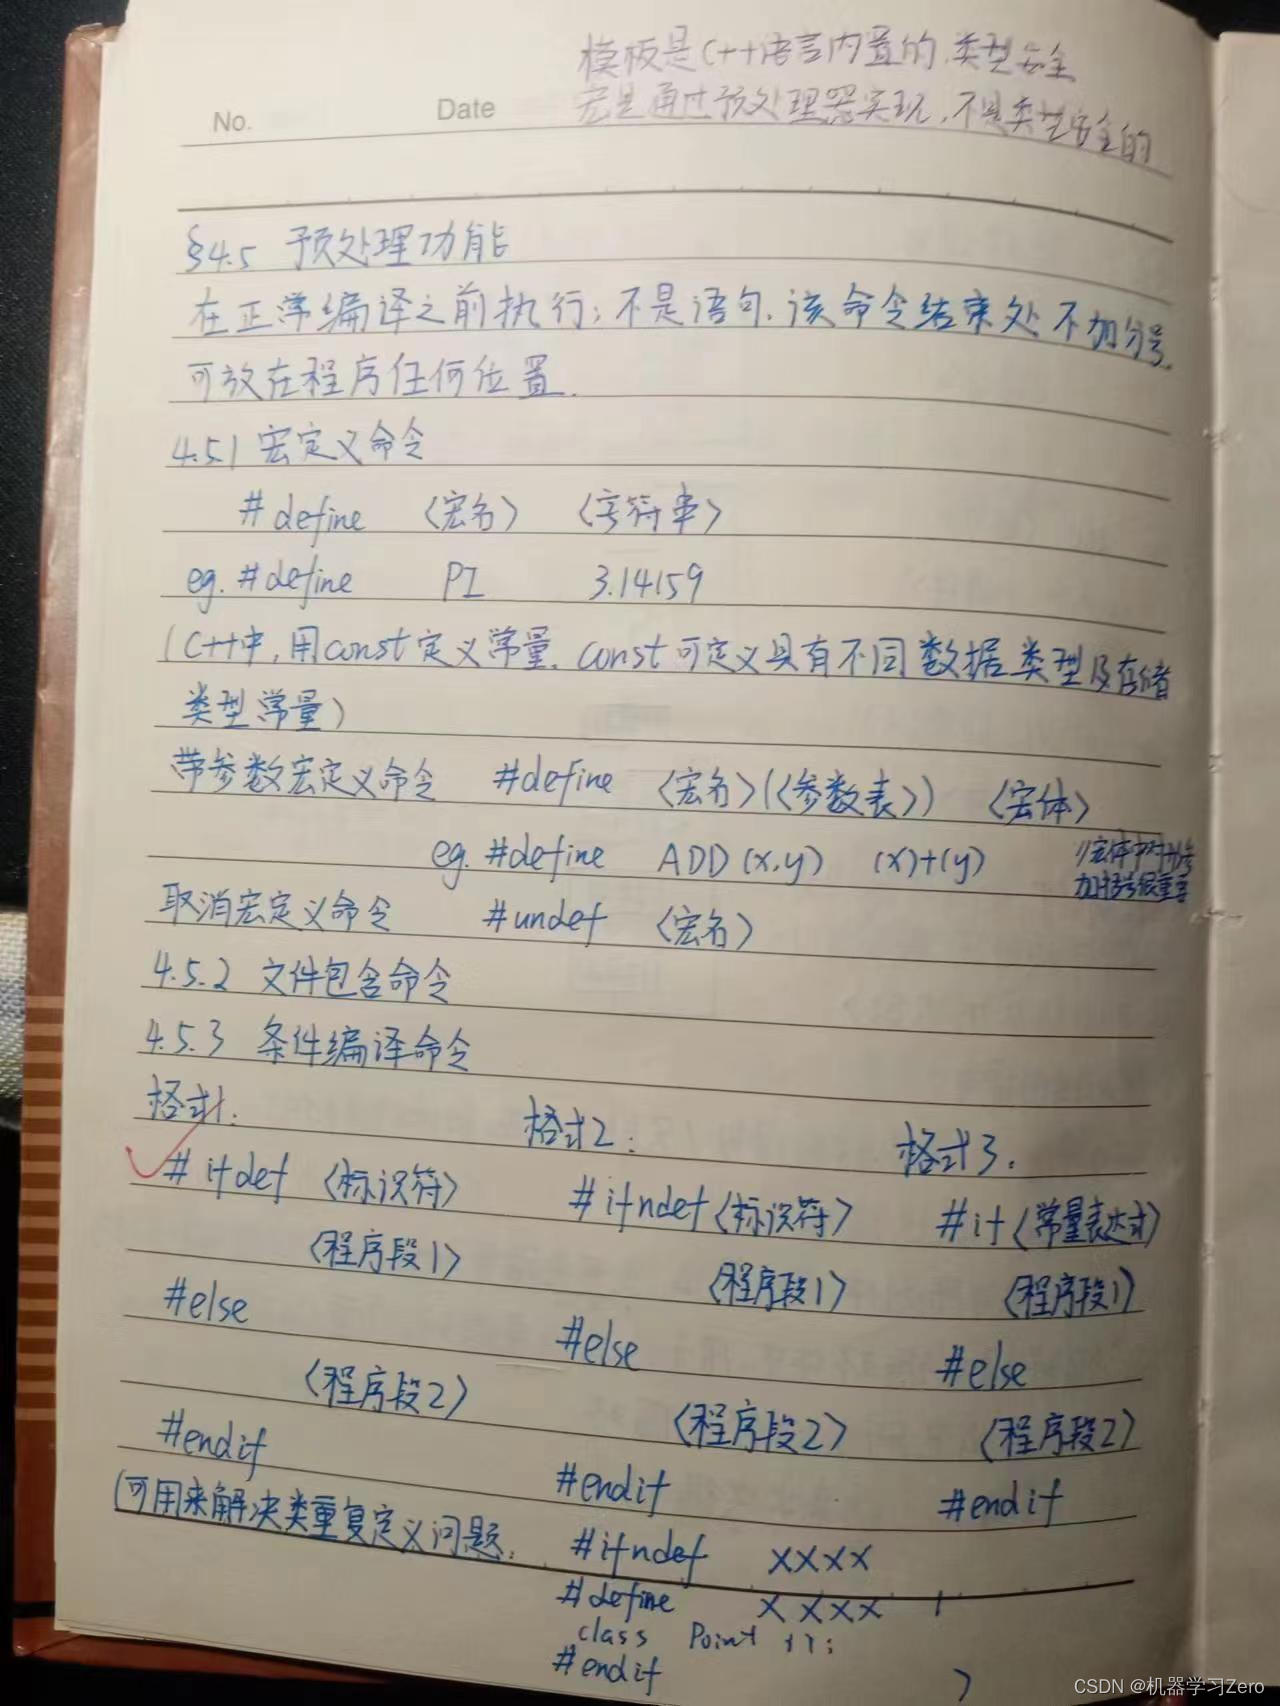 模板是C++语言内置的,类型安全
宏是通过预处理器实现,不是类型安全的
No.
Date
§4.5 预处理功能
在正常编译之前执行;不是语句,该命令结束处不加分号.
可放在程序任何位置.
4.5.1 宏定义命令
#define 〈宏名〉 〈字符串〉
eg. #define PI 3.14159
(C++中,用const定义常量,const可定义具有不同数据类型及存储
类型常量)
带参数宏定义命令 #define 〈宏名〉(〈参数表〉) 〈宏体〉
eg. #define ADD(x,y) (x)+(y) //宏体中对形参
加括号很重要
取消宏定义命令 #undef 〈宏名〉
4.5.2 文件包含命令
4.5.3 条件编译命令
格式1: 格式2: 格式3:
#ifdef 〈标识符〉 #ifndef〈标识符〉 #if〈常量表达式〉
〈程序段1〉 〈程序段1〉 〈程序段1〉
#else #else #else
〈程序段2〉 〈程序段2〉 〈程序段2〉
#endif #endif #endif
(可用来解决类重复定义问题: #ifndef XXXX
#define XXXX 1
class Point {};
#endif )
CSDN @机器学习Zero